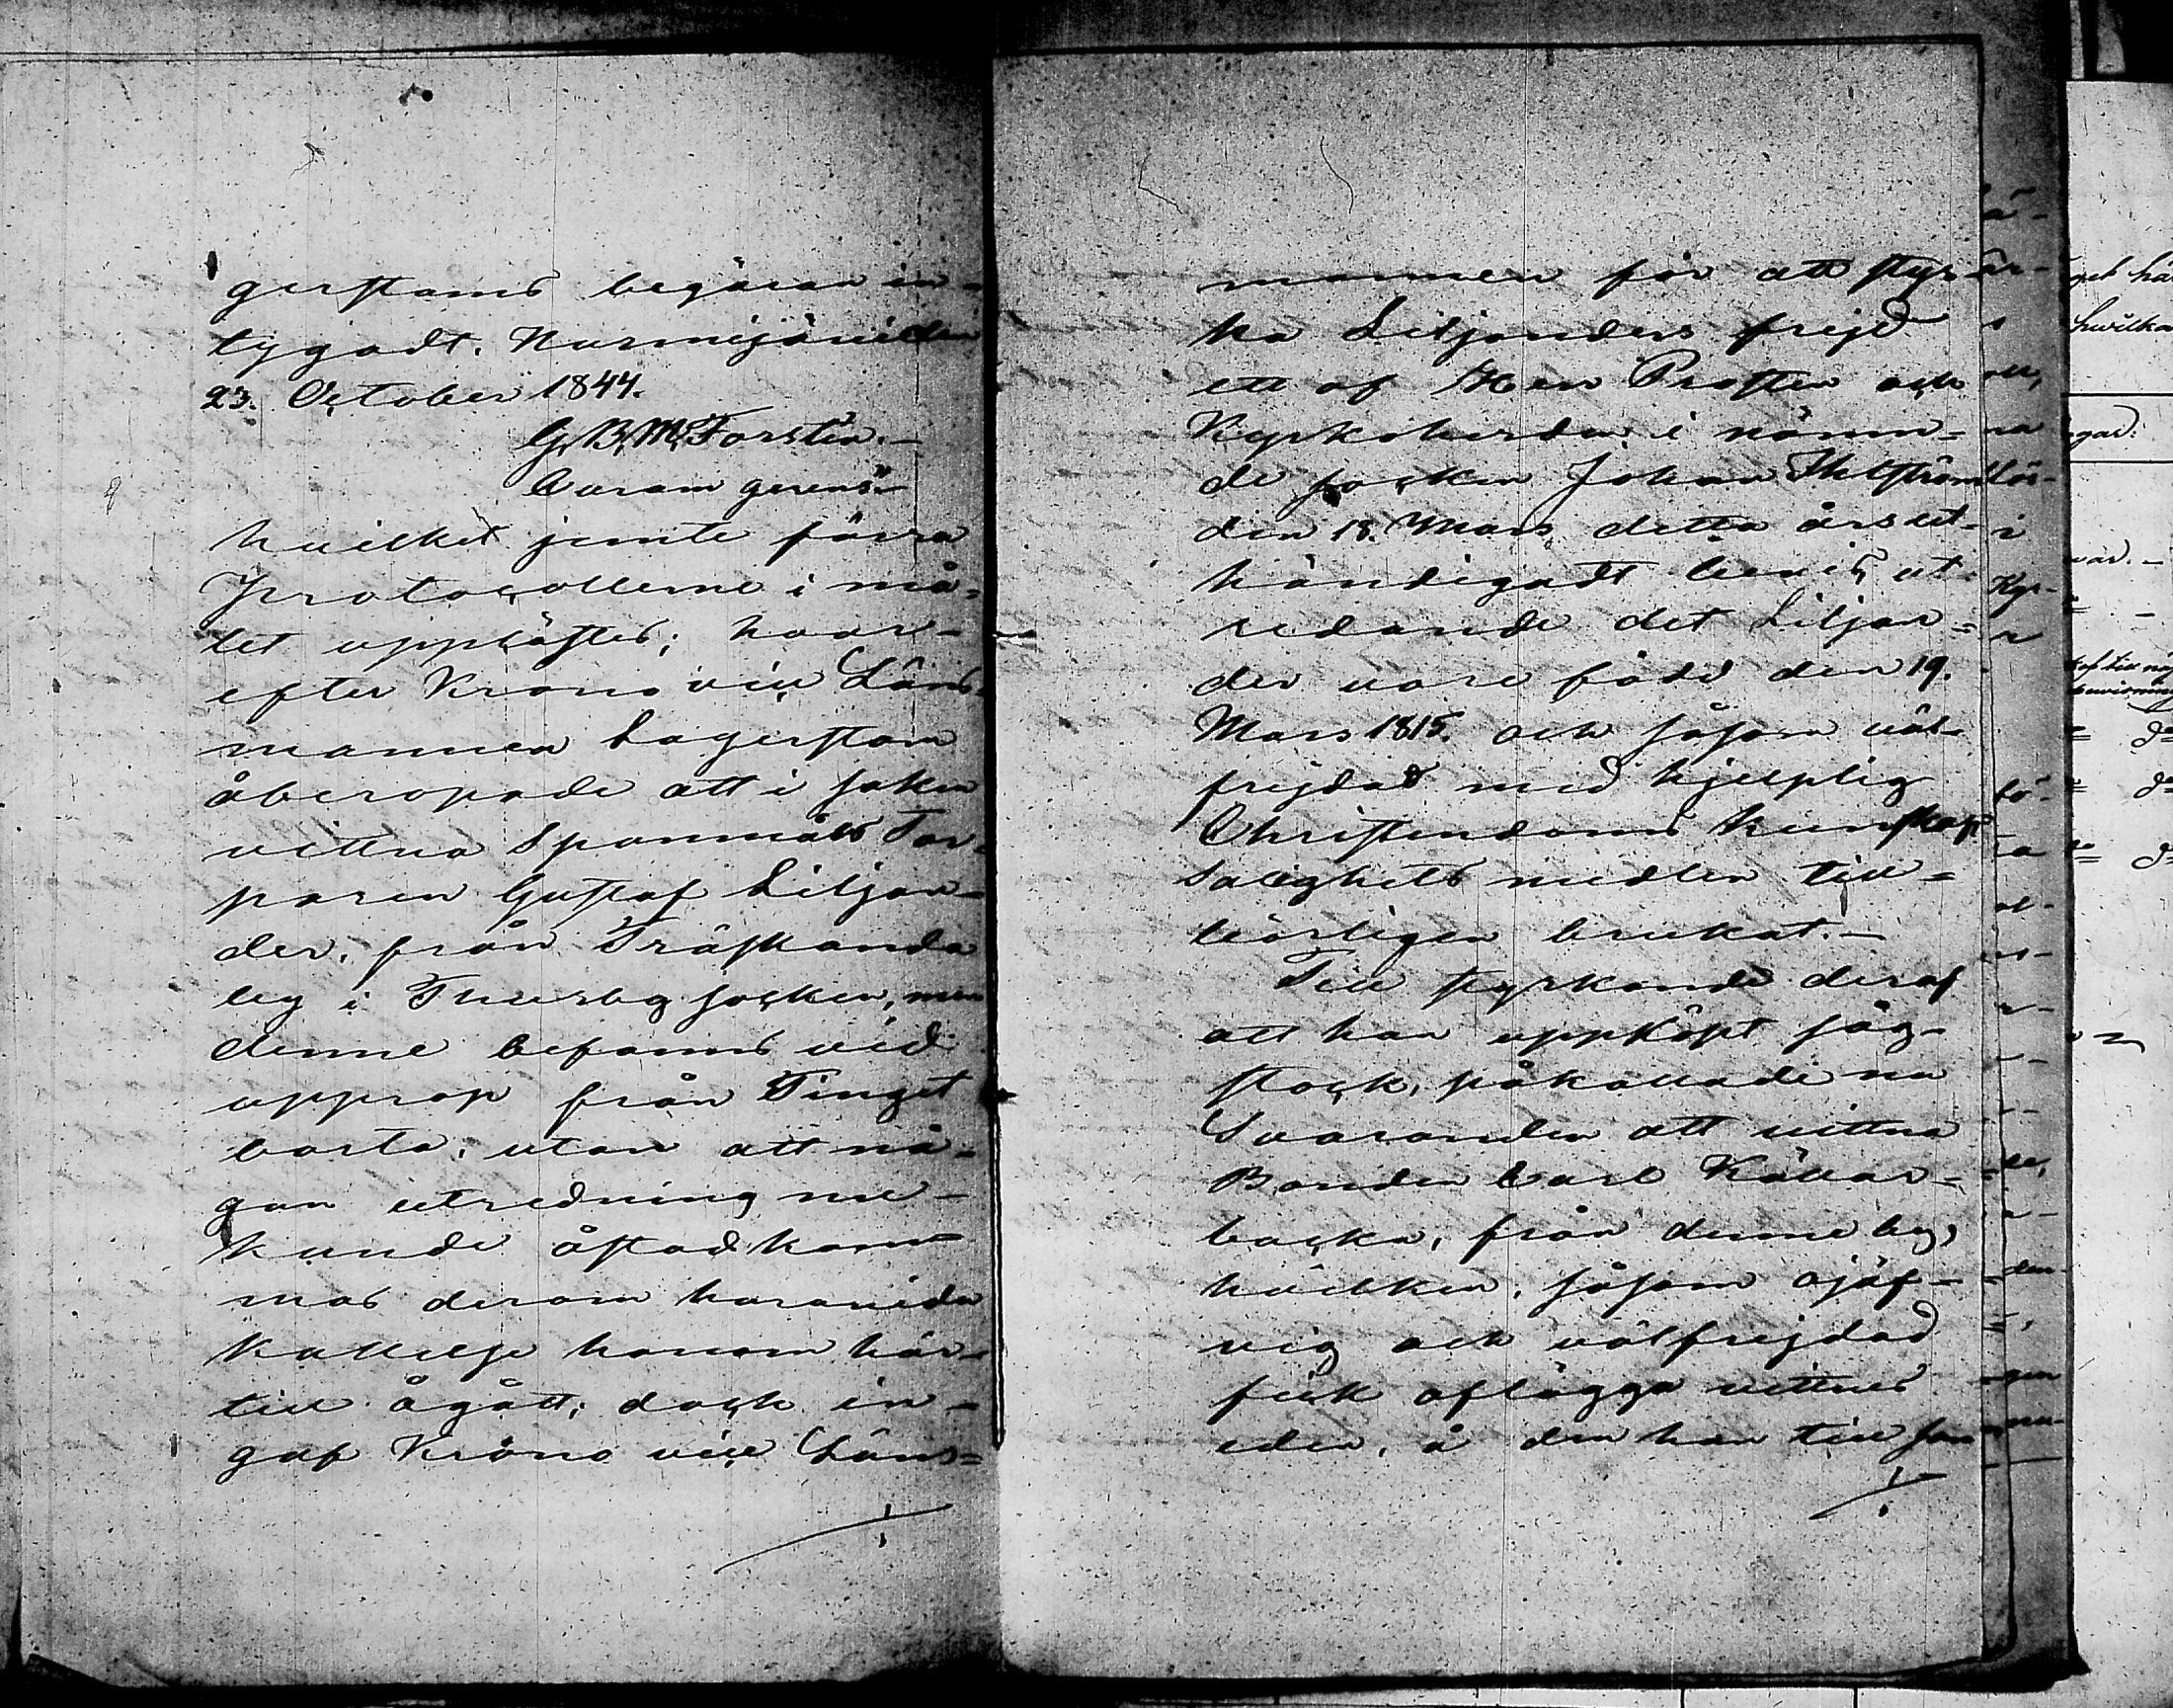 gerstams begäran in-
tygadt. Nurmijärvi den
23. October 1844.
G. B. M. Forstén.-
Curam gerens.-
hvilket jemte förra
Protocollerne i må-
let upplästes; hvar-
efter Krono vice Läns-
mannen Lagerstam
åberopade att i saken
vittna Spanmåls Tor-
paren Gustaf Liljan-
der, från Träskända
by i Thusby socken, men
denne befanns vid
upprop från Tinget
borta, utan att nå-
gon utredning nu
kunde åstadkom-
mas derom huruvida
kallelse honom här-
till ågått; dock in-
gaf Krono vice Läns-
mannen för att styr-
ka Liljanders frejd
ett af Herr Prosten och
Kyrkoherden i nämn-
de socken Johan Ihlström
den 18. Mars detta års ut-
händigadt bevis ut-
redande det Liljan-
der vore född den 19.
Mars 1815. och såsom väl-
frejdad med hjelplig
Christendoms kunskap
Salighets medlen till-
börligen brukat.-
Till styrkande deraf
att han uppköpt såg-
stock, påkallade nu
Svaranden att vittna
Bonden Carl Källar-
backa, från denne by,
hvilken, såsom ojäf-
vig och välfrejdad
fick aflägga vittnes
eden, å den han till san